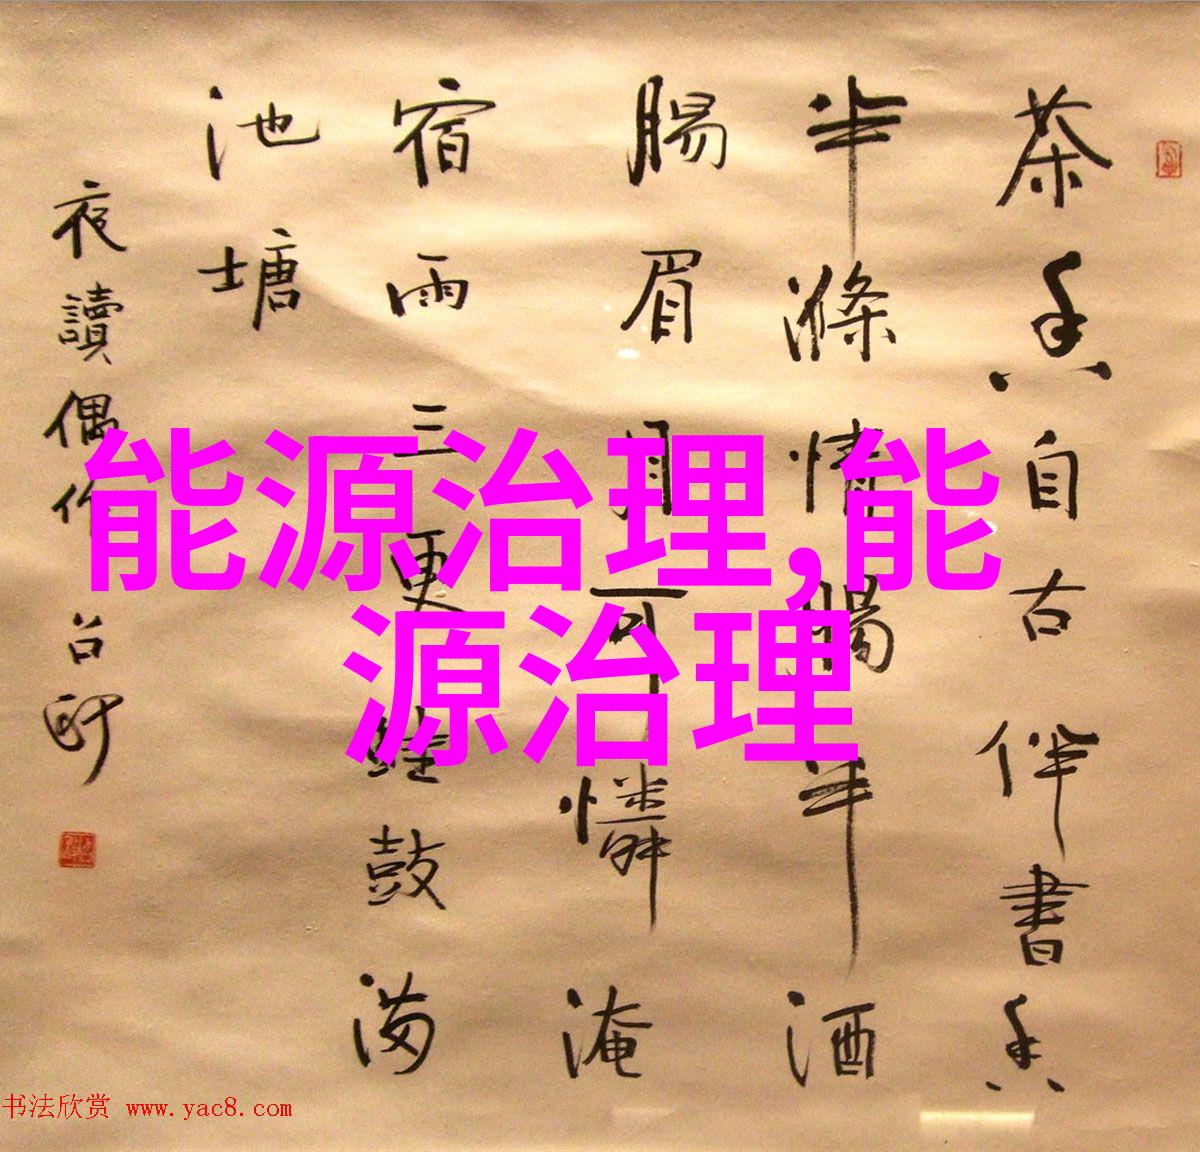 茶香自古伴書香
半滌情腸半酒
腸眉月可憐淹
宿雨三更蛙鼓滿
池塘
夜讀偶作
能源治理,能
源治理
书法欣赏 www.yac8.com